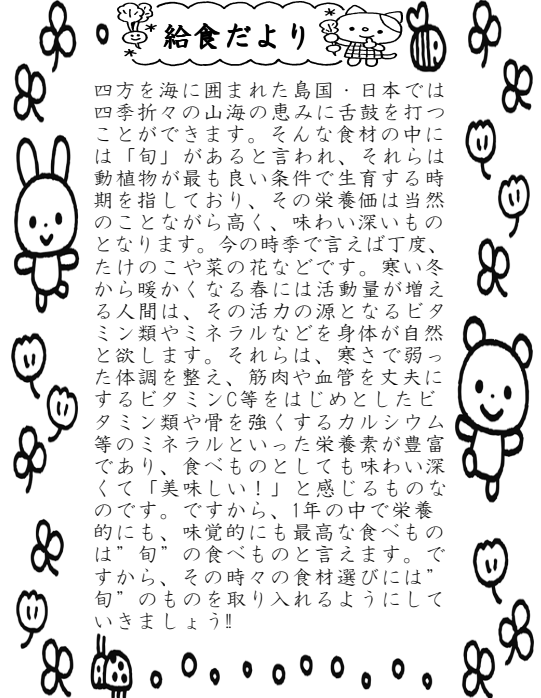 給食だより
四方を海に囲まれた島国・日本では
四季折々の山海の恵みに舌鼓を打つ
ことができます。そんな食材の中に
は「旬」があると言われ、それらは
動植物が最も良い条件で生育する時
期を指しており、その栄養価は当然
のことながら高く、味わい深いもの
となります。今の時季で言えば丁度、
たけのこや菜の花などです。寒い冬
から暖かくなる春には活動量が増え
る人間は、その活力の源となるビタ
ミン類やミネラルなどを身体が自然
と欲します。それらは、寒さで弱っ
た体調を整え、筋肉や血管を丈夫に
するビタミンC等をはじめとしたビ
タミン類や骨を強くするカルシウム
等のミネラルといった栄養素が豊富
であり、食べものとしても味わい深
くて「美味しい！」と感じるものな
のです。ですから、1年の中で栄養
的にも、味覚的にも最高な食べもの
は”旬”の食べものと言えます。で
すから、その時々の食材選びには”
旬”のものを取り入れるようにして
いきましょう‼